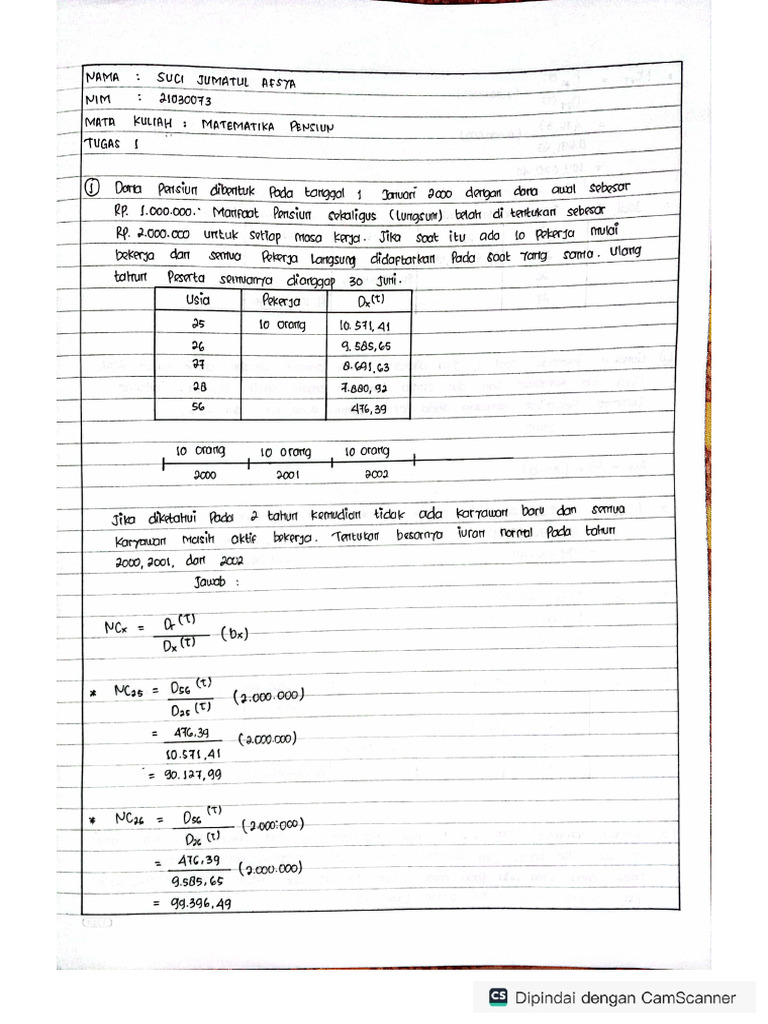 NAMA : SUCI JUMATUL AFSYA
NIM : 21030073
MATA KULIAH : MATEMATIKA PENSIUN
TUGAS 1
① Dana Pensiun dibentuk Pada tanggal 1 Januari 2000 dengan dana awal sebesar
Rp. 1.000.000.- Manfaat Pensiun sekaligus (Lungsum) telah di tentukan sebesar
Rp. 2.000.000 untuk setiap masa kerja. Jika saat itu ada 10 pekerja mulai
bekerja dan semua Pekerja Langsung didaftarkan Pada saat Yang sama. Ulang
tahun Peserta semuanya dianggap 30 Juni.
Usia Pekerja Dx(τ)
25 10 orang 10.571,41
26 9.585,65
27 8.691,63
28 7.880,92
56 476,39
10 orang 10 orang 10 orang
2000 2001 2002
Jika diketahui Pada 2 tahun kemudian tidak ada karyawan baru dan semua
Karyawan Masih aktif bekerja. Tentukan besarnya iuran normal Pada tahun
2000, 2001, dan 2002
Jawab :
NCx = Dr(τ) / Dx(τ) (bx)
* NC25 = D56(τ) / D25(τ) (2.000.000)
= 476,39 / 10.571,41 (2.000.000)
= 90.127,99
* NC26 = D56(τ) / D26(τ) (2.000.000)
= 476,39 / 9.585,65 (2.000.000)
= 99.396,49
CS Dipindai dengan CamScanner